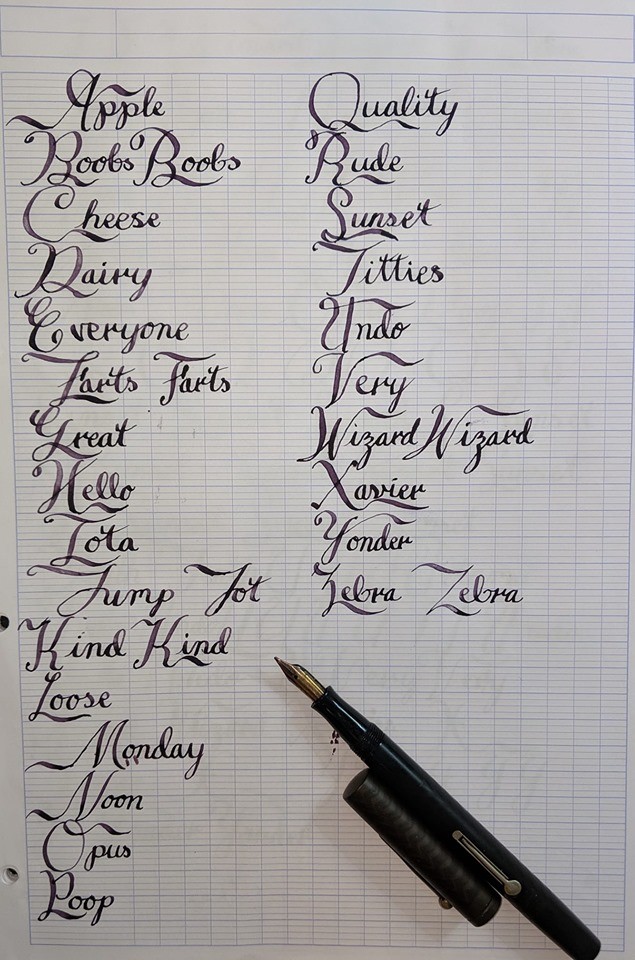 Apple
Boobs Boobs
Cheese
Dairy
Everyone
Farts Farts
Great
Hello
Iota
Jump Jot
Kind Kind
Loose
Monday
Noon
Opus
Poop
Quality
Rude
Sunset
Titties
Undo
Very
Wizard Wizard
Xavier
Yonder
Zebra Zebra